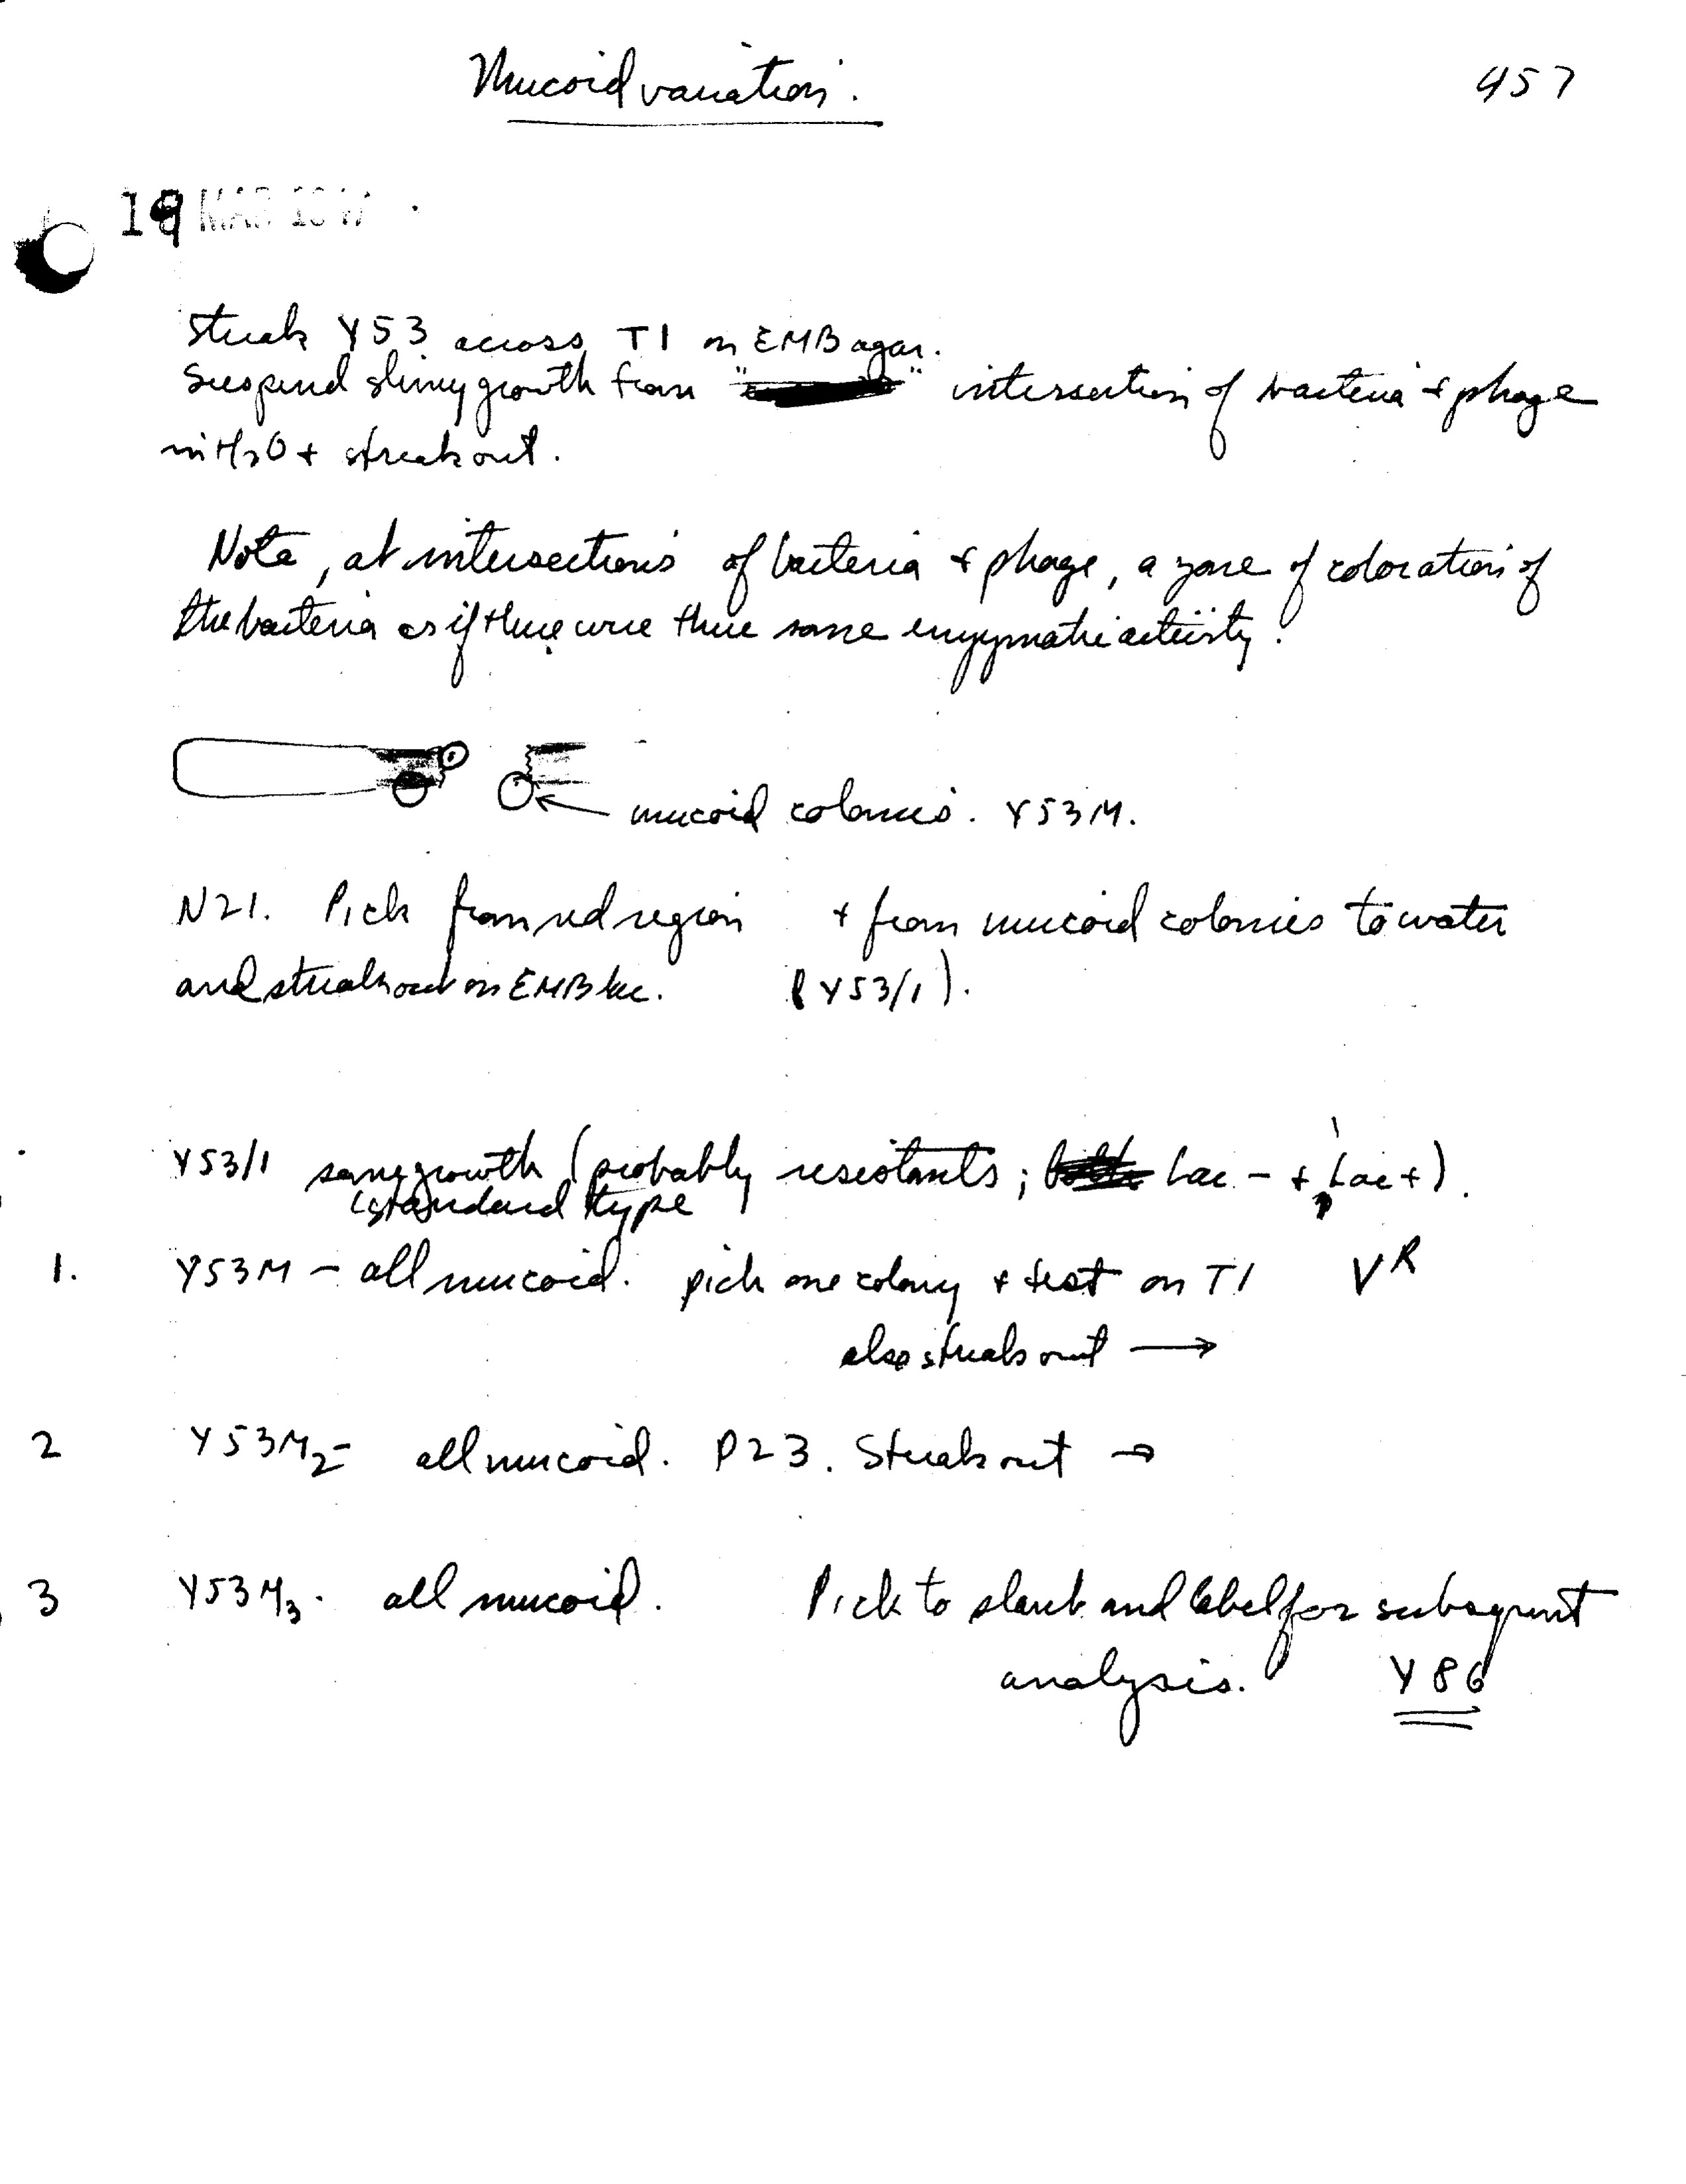 Mucoid variation.
457
19 MAR 1947
Streak Y53 across T1 on EMB agar.
Suspend slimy growth from " " intersection of bacteria + phage
in H2O + streak out.
Note, at intersections of bacteria + phage, a zone of coloration of
the bacteria as if there were there some enzymatic activity.
mucoid colonies. Y53M.
N21. Pick from red region + from mucoid colonies to water
and streak out on EMB lac. (Y53/1).
Y53/1 some growth (probably resistants; Lac - + Lac +).
(standard type
1. Y53M - all mucoid. pick one colony + test on T1 V^R
also streak out →
2 Y53M2 - all mucoid. P23. Streak out →
3 Y53M3. all mucoid. Pick to slant and label for subsequent
analysis. Y86